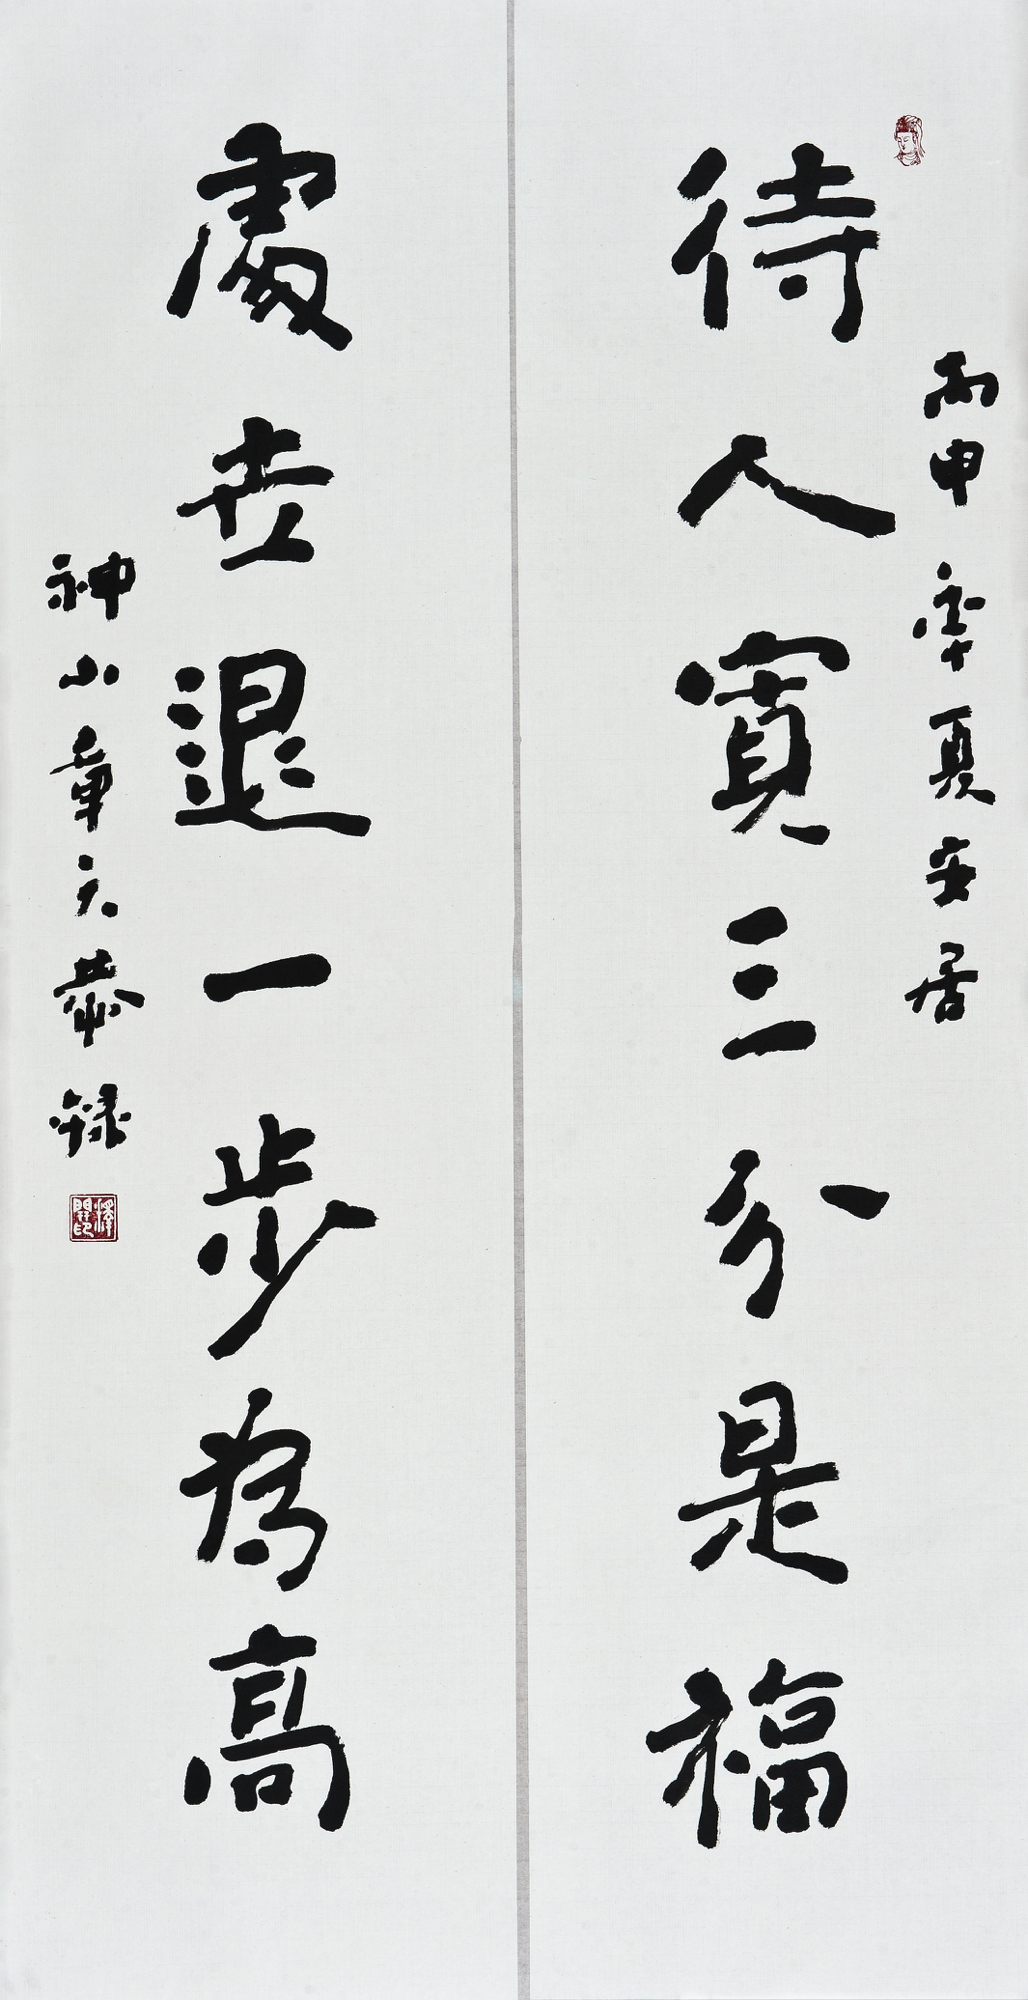 丙申季夏安居
待人寬三分是福
處世退一步為高
神山章天恭錄